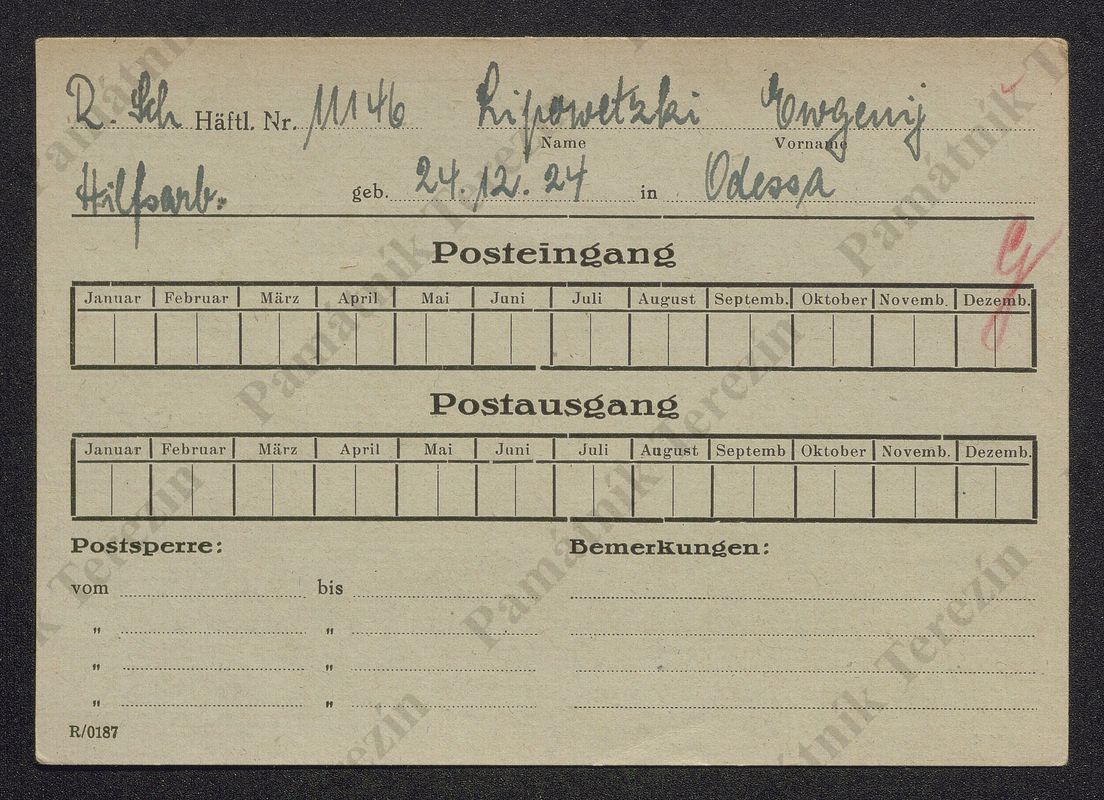 R. Sch Häftl. Nr. 11146 Lipowetzki Ewgenij
Name Vorname
Hilfsarb. geb. 24.12.24 in Odessa
Posteingang
Januar Februar März April Mai Juni Juli August Septemb. Oktober Novemb. Dezemb.
Postausgang
Januar Februar März April Mai Juni Juli August Septemb Oktober Novemb. Dezemb.
Postsperre: Bemerkungen:
vom bis
" "
" "
" "
R/0187
Památník Terezín